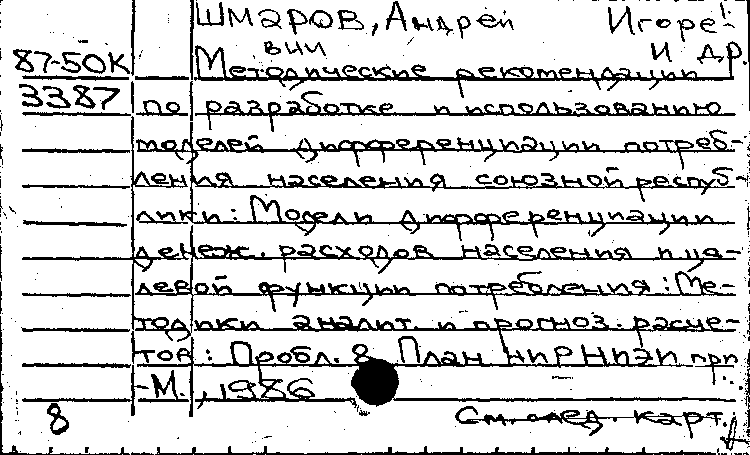 ШМАРОВ, Андрей Игоре-
вич и др.
87-50К Методические рекомендации
3387 по разработке и использованию
моделей дифференциации потреб-
ления населения союзной респуб-
лики: Модели дифференциации
денеж. расходов населения и це-
левой функции потребления: Ме-
тодики аналит. и прогноз. расче-
тов: Пробл. 8 План НИР НИЭИ при
-М., 1986
8 См. след. карт.